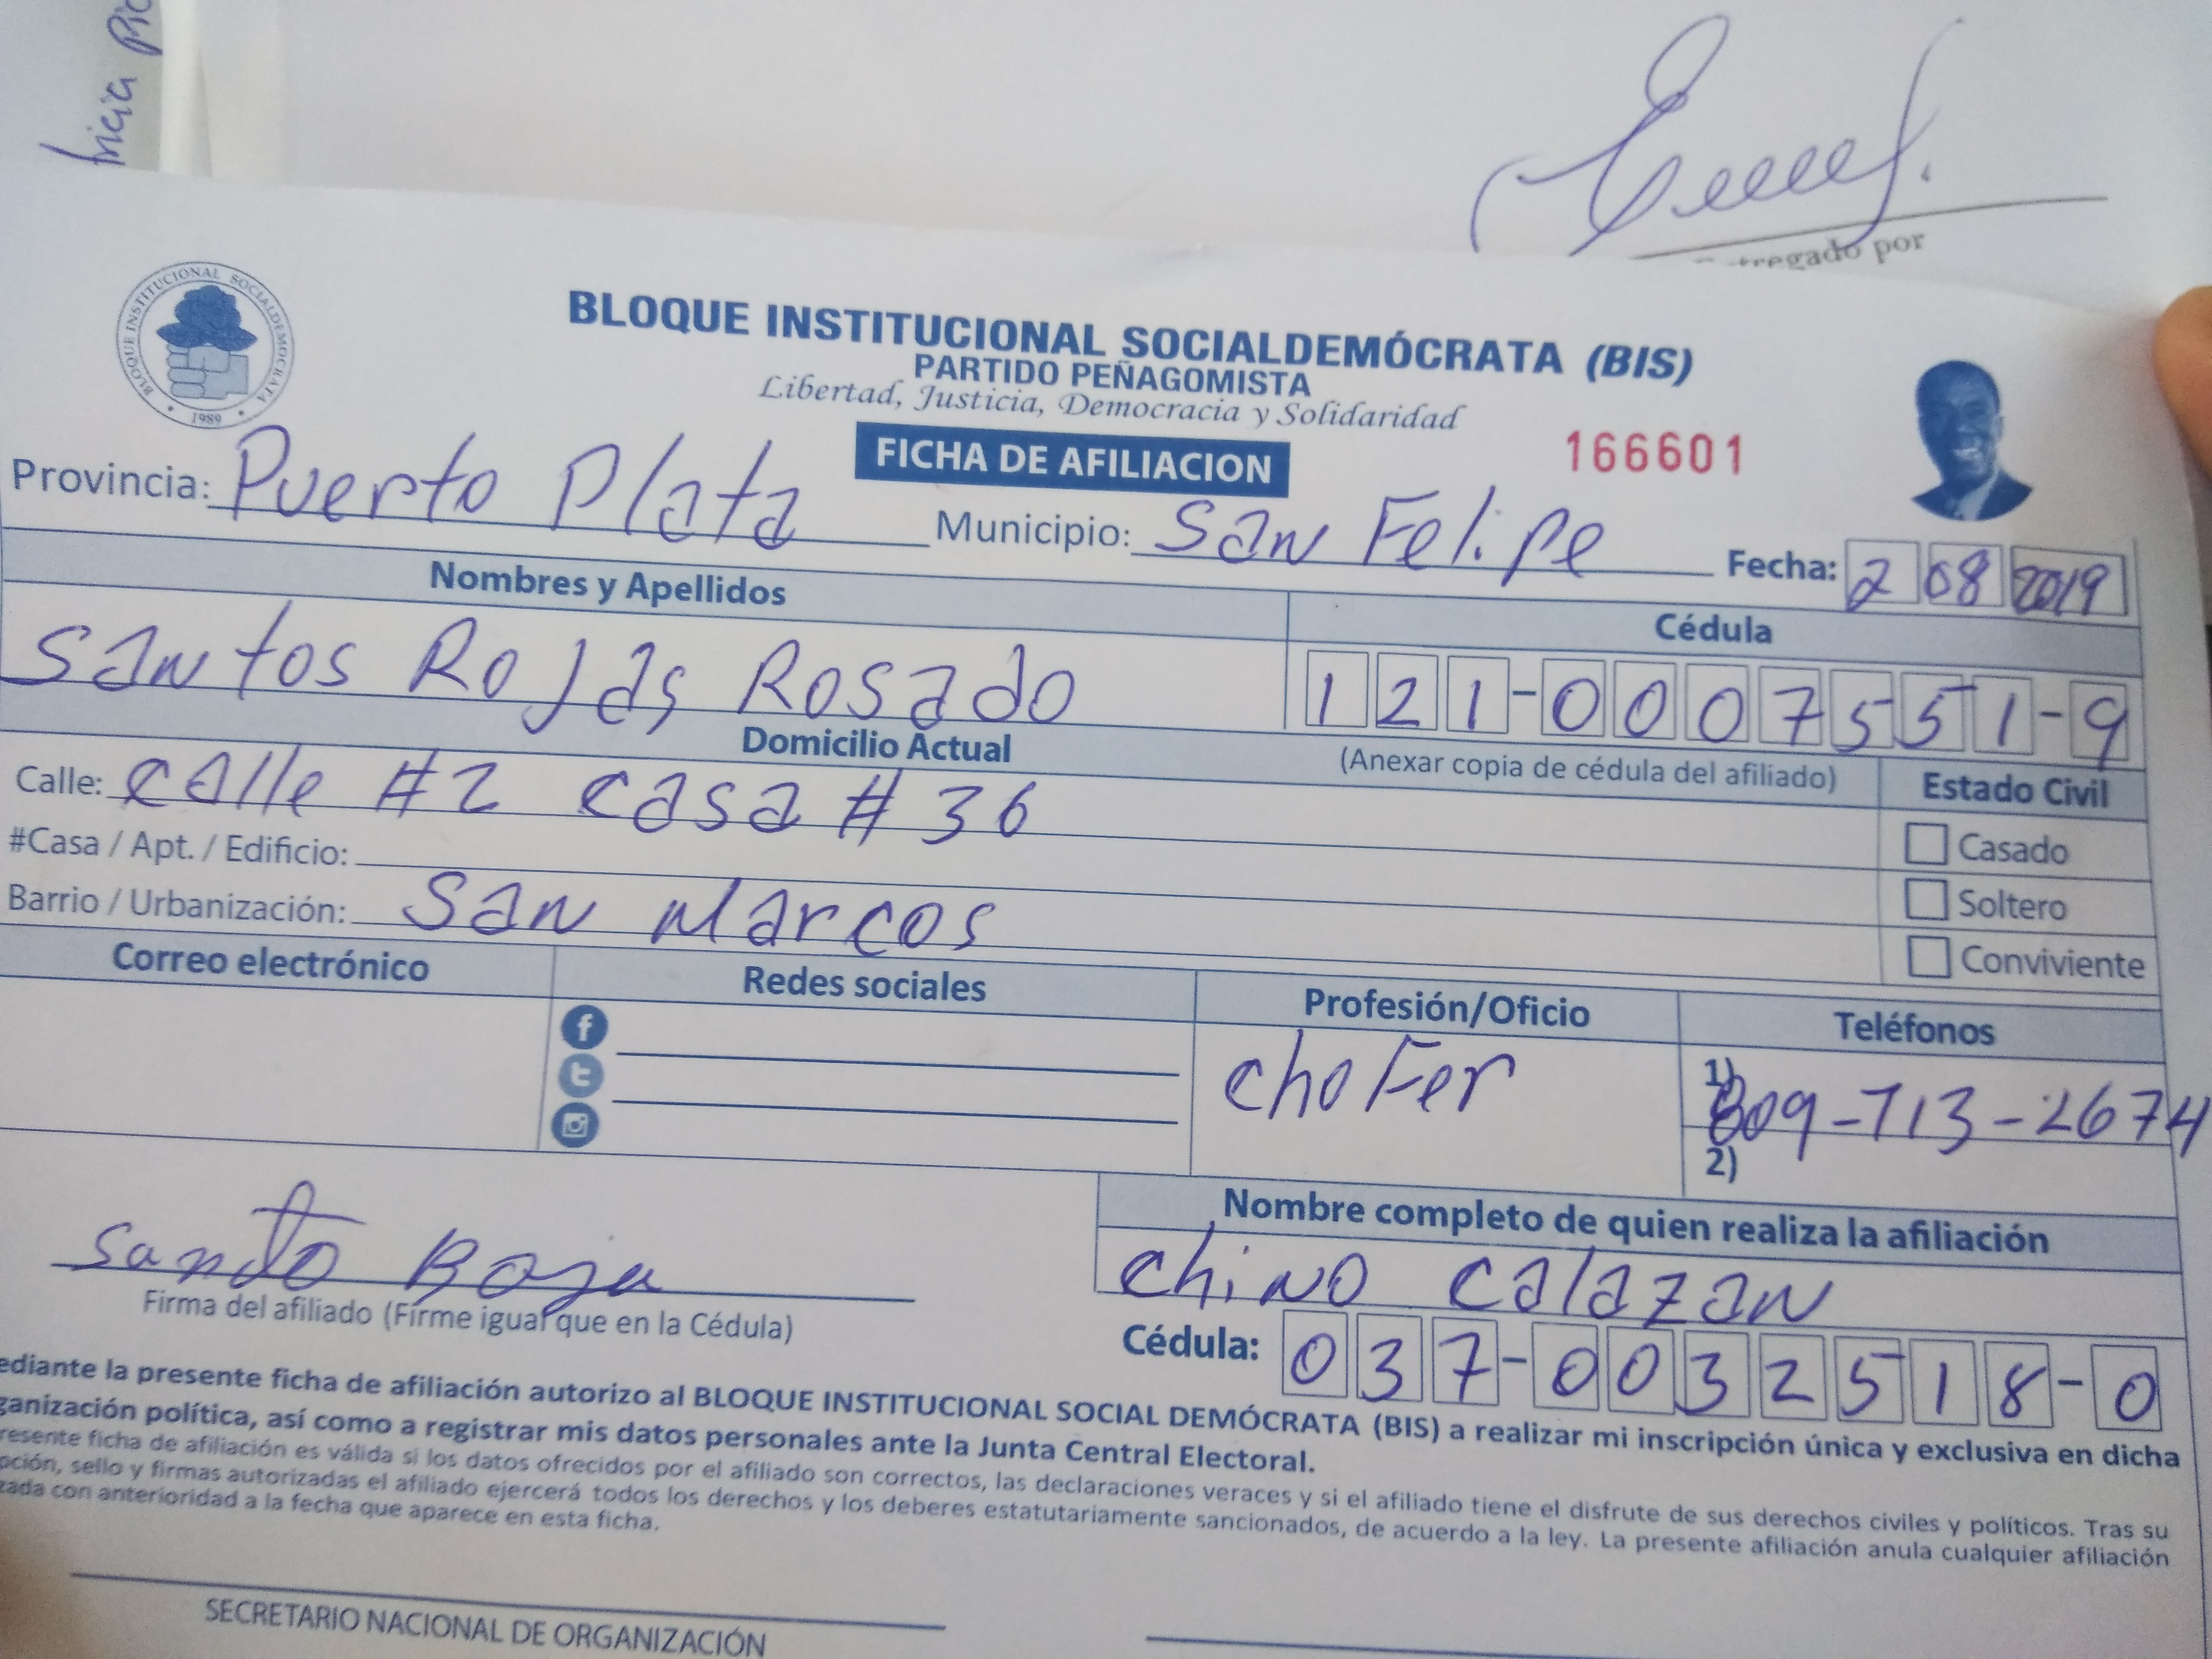 tregado por
BLOQUE INSTITUCIONAL SOCIALDEMOCRATA
1989
BLOQUE INSTITUCIONAL SOCIALDEMÓCRATA (BIS)
PARTIDO PEÑAGOMISTA
Libertad, Justicia, Democracia y Solidaridad
FICHA DE AFILIACION
166601
Provincia: Puerto Plata Municipio: San Felipe Fecha: 2 08 2019
Nombres y Apellidos Cédula
Santos Rojas Rosado 121-0007551-9
Domicilio Actual (Anexar copia de cédula del afiliado) Estado Civil
Calle: Calle #2 casa #36
#Casa / Apt. / Edificio: Casado
Barrio / Urbanización: San Marcos Soltero
Conviviente
Correo electrónico Redes sociales Profesión/Oficio Teléfonos
Chofer 1) 809-713-2674
2)
Nombre completo de quien realiza la afiliación
Santo Roja Chino Calazan
Firma del afiliado (Firme igual que en la Cédula) Cédula: 037-0032518-0
ediante la presente ficha de afiliación autorizo al BLOQUE INSTITUCIONAL SOCIAL DEMÓCRATA (BIS) a realizar mi inscripción única y exclusiva en dicha
ganización política, así como a registrar mis datos personales ante la Junta Central Electoral.
resente ficha de afiliación es válida si los datos ofrecidos por el afiliado son correctos, las declaraciones veraces y si el afiliado tiene el disfrute de sus derechos civiles y políticos. Tras su
pción, sello y firmas autorizadas el afiliado ejercerá todos los derechos y los deberes estatutariamente sancionados, de acuerdo a la ley. La presente afiliación anula cualquier afiliación
zada con anterioridad a la fecha que aparece en esta ficha.
SECRETARIO NACIONAL DE ORGANIZACIÓN